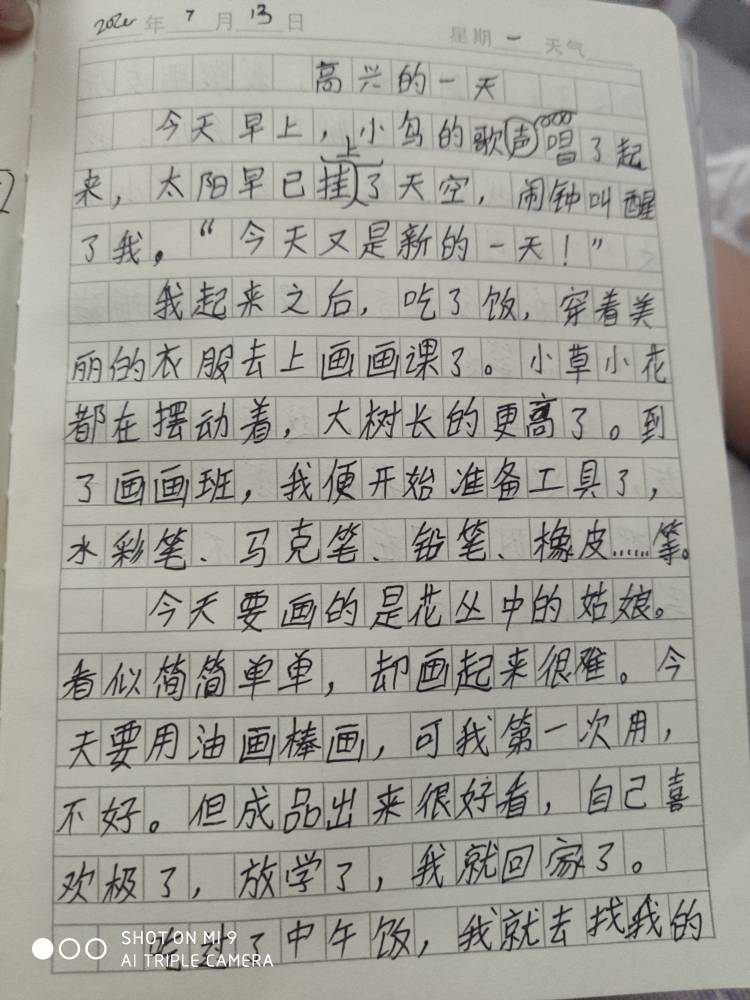 202 年 7 月 13 日 星期 一 天气
高兴的一天
今天早上，小鸟的歌声唱了起
上
来，太阳早已挂了天空，闹钟叫醒
了我。“今天又是新的一天！”
我起来之后，吃了饭，穿着美
丽的衣服去上画画课了。小草小花
都在摆动着，大树长的更高了。到
了画画班，我便开始准备工具了，
水彩笔、马克笔、铅笔、橡皮……等。
今天要画的是花丛中的姑娘。
看似简简单单，却画起来很难。今
天要用油画棒画，可我第一次用，
不好。但成品出来很好看，自己喜
欢极了，放学了，我就回家了。
吃了中午饭，我就去找我的
SHOT ON MI 9
AI TRIPLE CAMERA